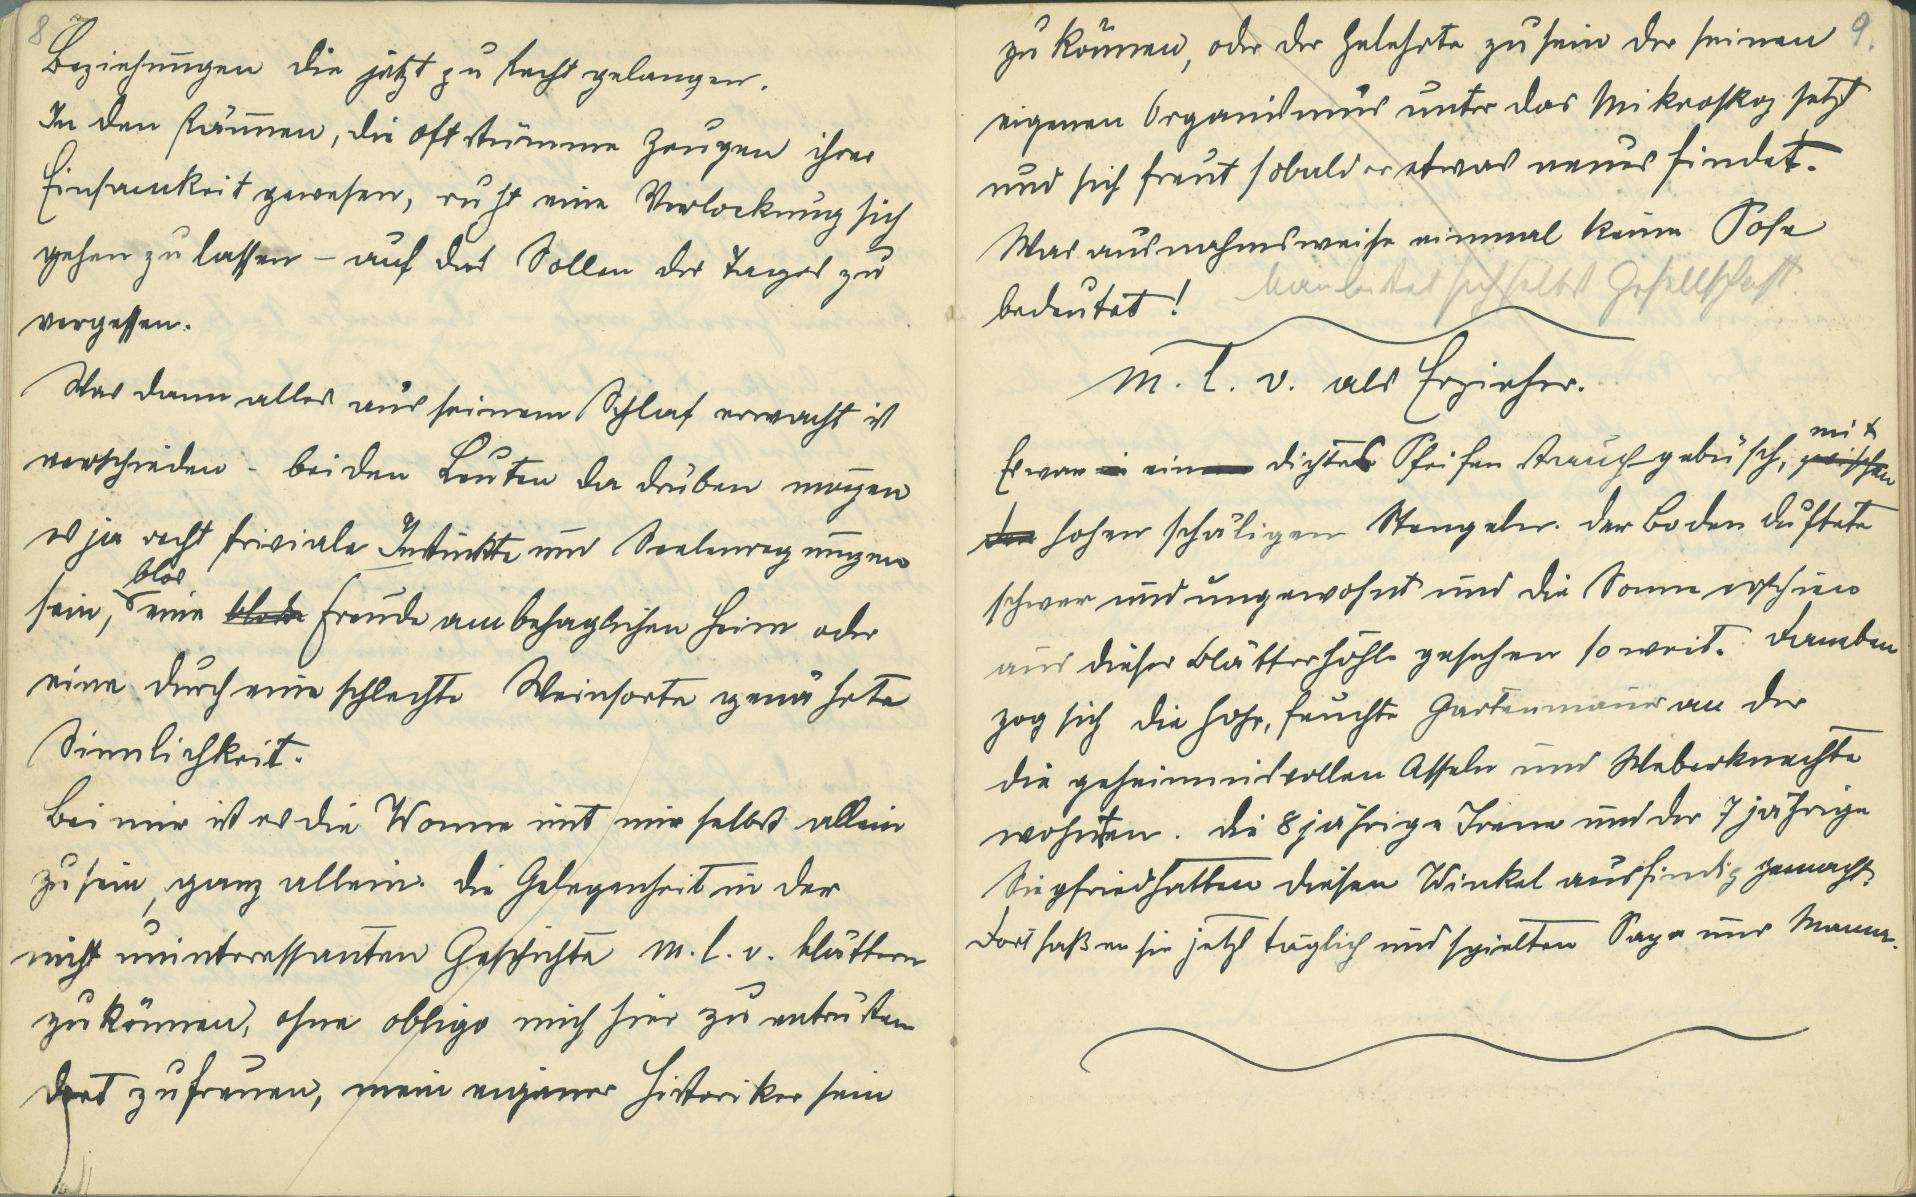 8
Beziehungen die jetzt zu Recht gelangen.
In den Räumen, die oft stumme Zeugen ihrer
Einsamkeit gewesen, ruht eine Verlockung sich
gehen zu lassen – auf das Sollen des Tages zu
vergessen.
Was dann alles aus seinem Schlaf erwacht ist
verschieden - bei den Leuten da drüben mögen
es ja recht triviale Instinkte und Seelenregungen
sein, blos eine blode Freude am behaglichen Heim oder
eine durch eine schlechte Weinsorte genährte
Sinnlichkeit.
Bei mir ist es die Wonne mit mir selbst allein
zu sein, ganz allein. Die Gelegenheit in der
nicht uninteressanten Geschichte M. l. v. blättern
zu können, ohne obligo mich hier zu entrüsten
dort zu freuen, mein eigener Historiker sein
9.
zu können, oder der Gelehrte zu sein der seinen
eigenen Organismus unter das Mikroskop setzt
und sich freut sobald er etwas neues findet.
Was ausnahmsweise einmal keine Pose
bedeutet!
Man leistet sich selbst Gesellschaft.
M. l. v. als Erzieher.
Es war in ein dichtes Pfeifenstrauchgebüsch, zwischen mit
den hohen schäligen Stengeln. Der Boden duftete
schwer und ungewohnt und die Sonne erschien
aus dieser Blätterhöhle gesehen so weit. Daneben
zog sich die hohe, feuchte Gartenmauer an der
die geheimnisvollen Asseln und Weberknechte
wohnten. Die 8 jährige Irene und der 7 jährige
Siegfried hatten diesen Winkel ausfindig gemacht.
Dort saßen sie jetzt täglich und spielten Papa und Mama.